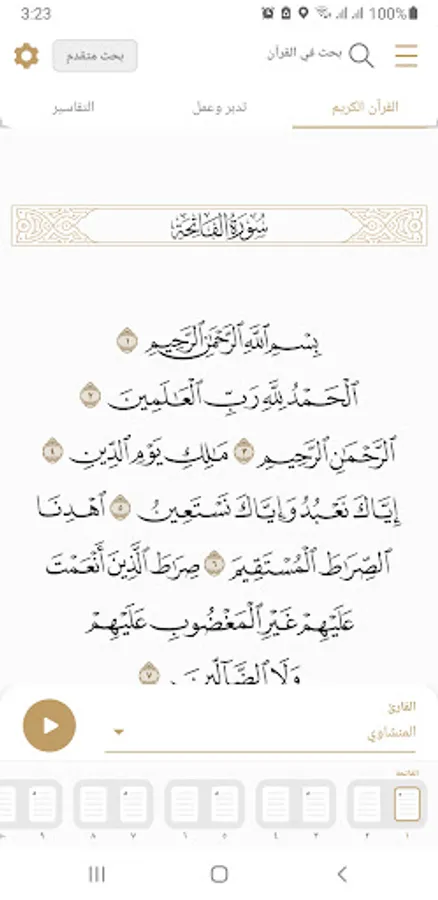 3:23 100%
بحث في القرآن بحث متقدم
القرآن الكريم تدبر وعمل التفاسير
سُورَةُ الفَاتِحَةِ
بِسْمِ ٱللَّهِ ٱلرَّحْمَٰنِ ٱلرَّحِيمِ ١
ٱلْحَمْدُ لِلَّهِ رَبِّ ٱلْعَٰلَمِينَ ٢
ٱلرَّحْمَٰنِ ٱلرَّحِيمِ ٣ مَٰلِكِ يَوْمِ ٱلدِّينِ ٤
إِيَّاكَ نَعْبُدُ وَإِيَّاكَ نَسْتَعِينُ ٥ ٱهْدِنَا
ٱلصِّرَٰطَ ٱلْمُسْتَقِيمَ ٦ صِرَٰطَ ٱلَّذِينَ أَنْعَمْتَ
عَلَيْهِمْ غَيْرِ ٱلْمَغْضُوبِ عَلَيْهِمْ
وَلَا ٱلضَّآلِّينَ ٧
القارئ
المنشاوي
الفاتحة
١ ٢ ٣ ٤ ٥ ٦ ٧ ٨ ٩